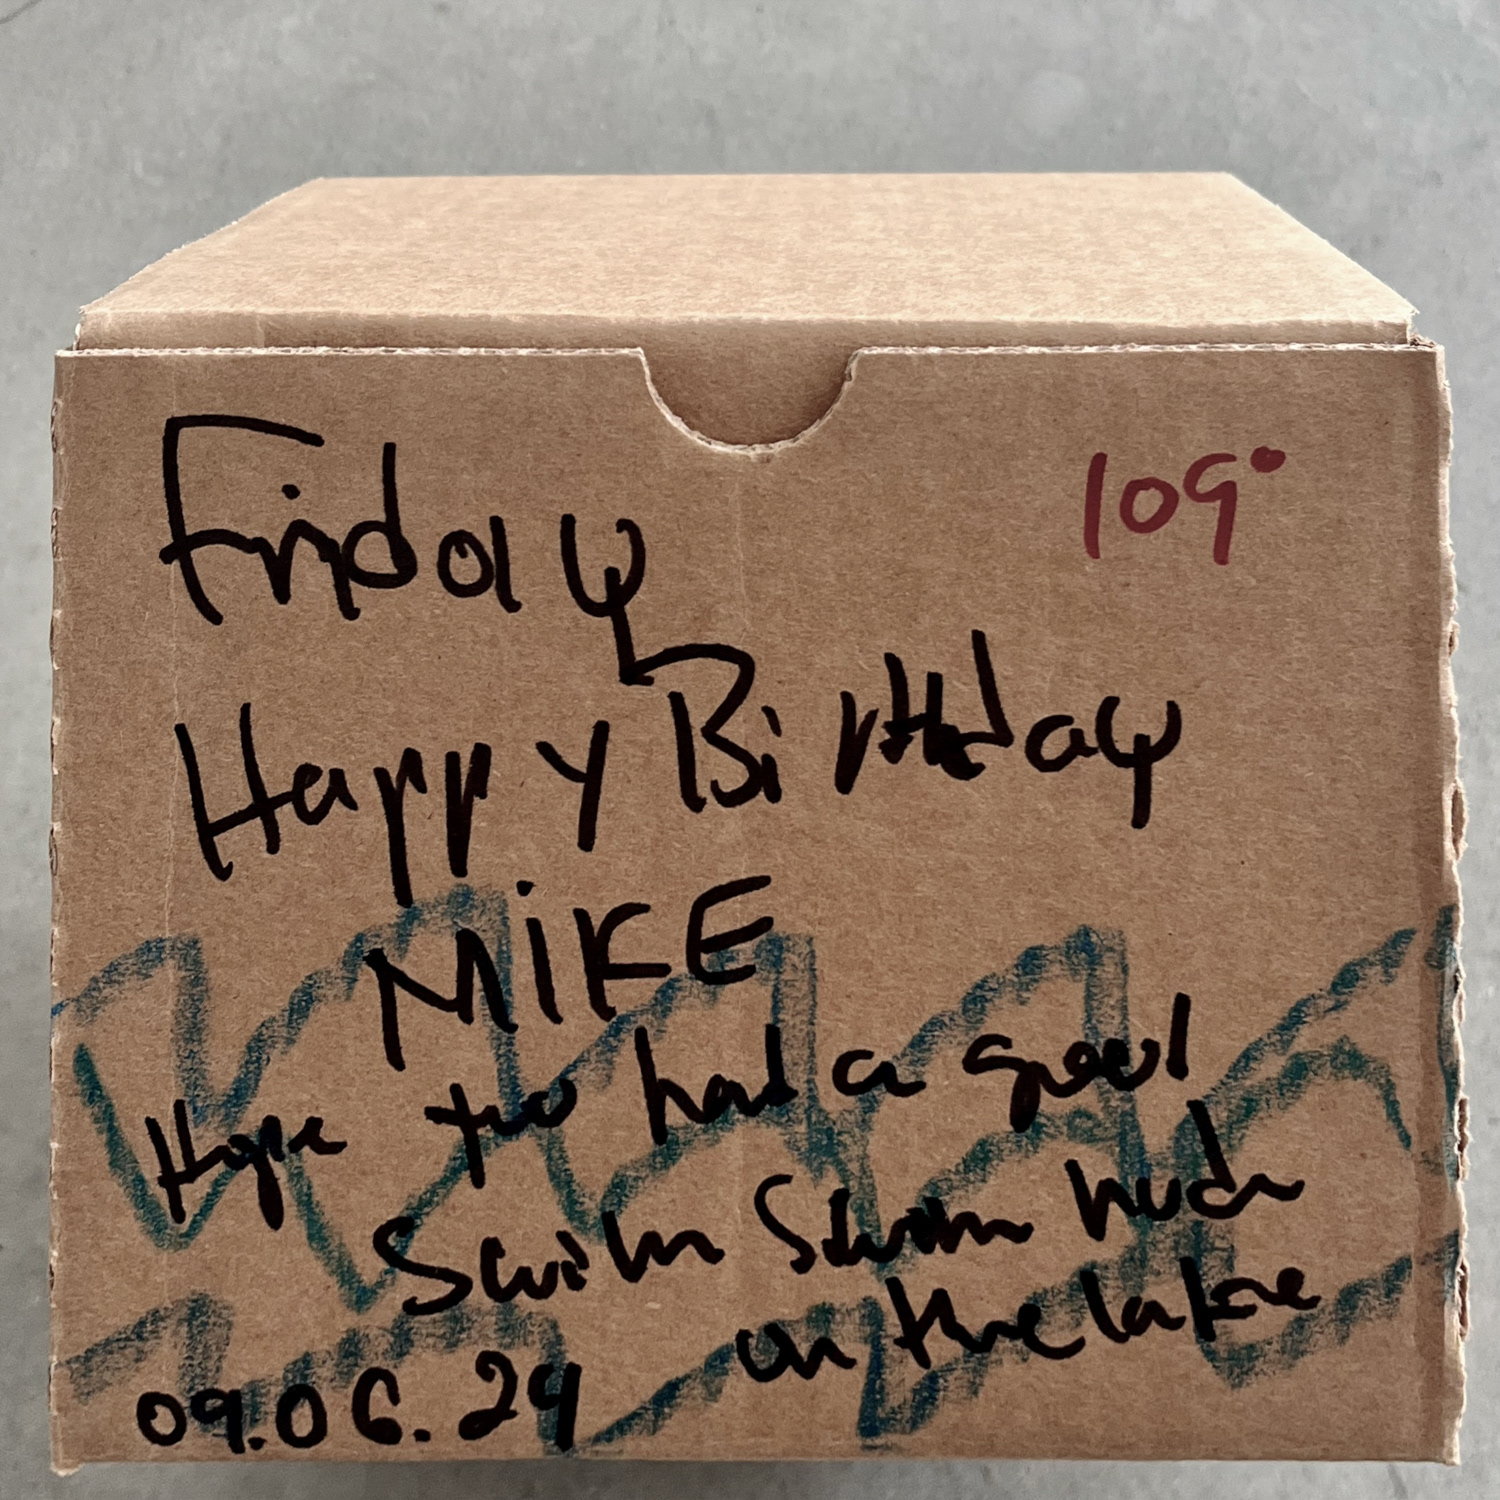 Friday
109°
Happy Birthday
MIKE
Hope had a good
Swim Swim
on the lake
09.06.24